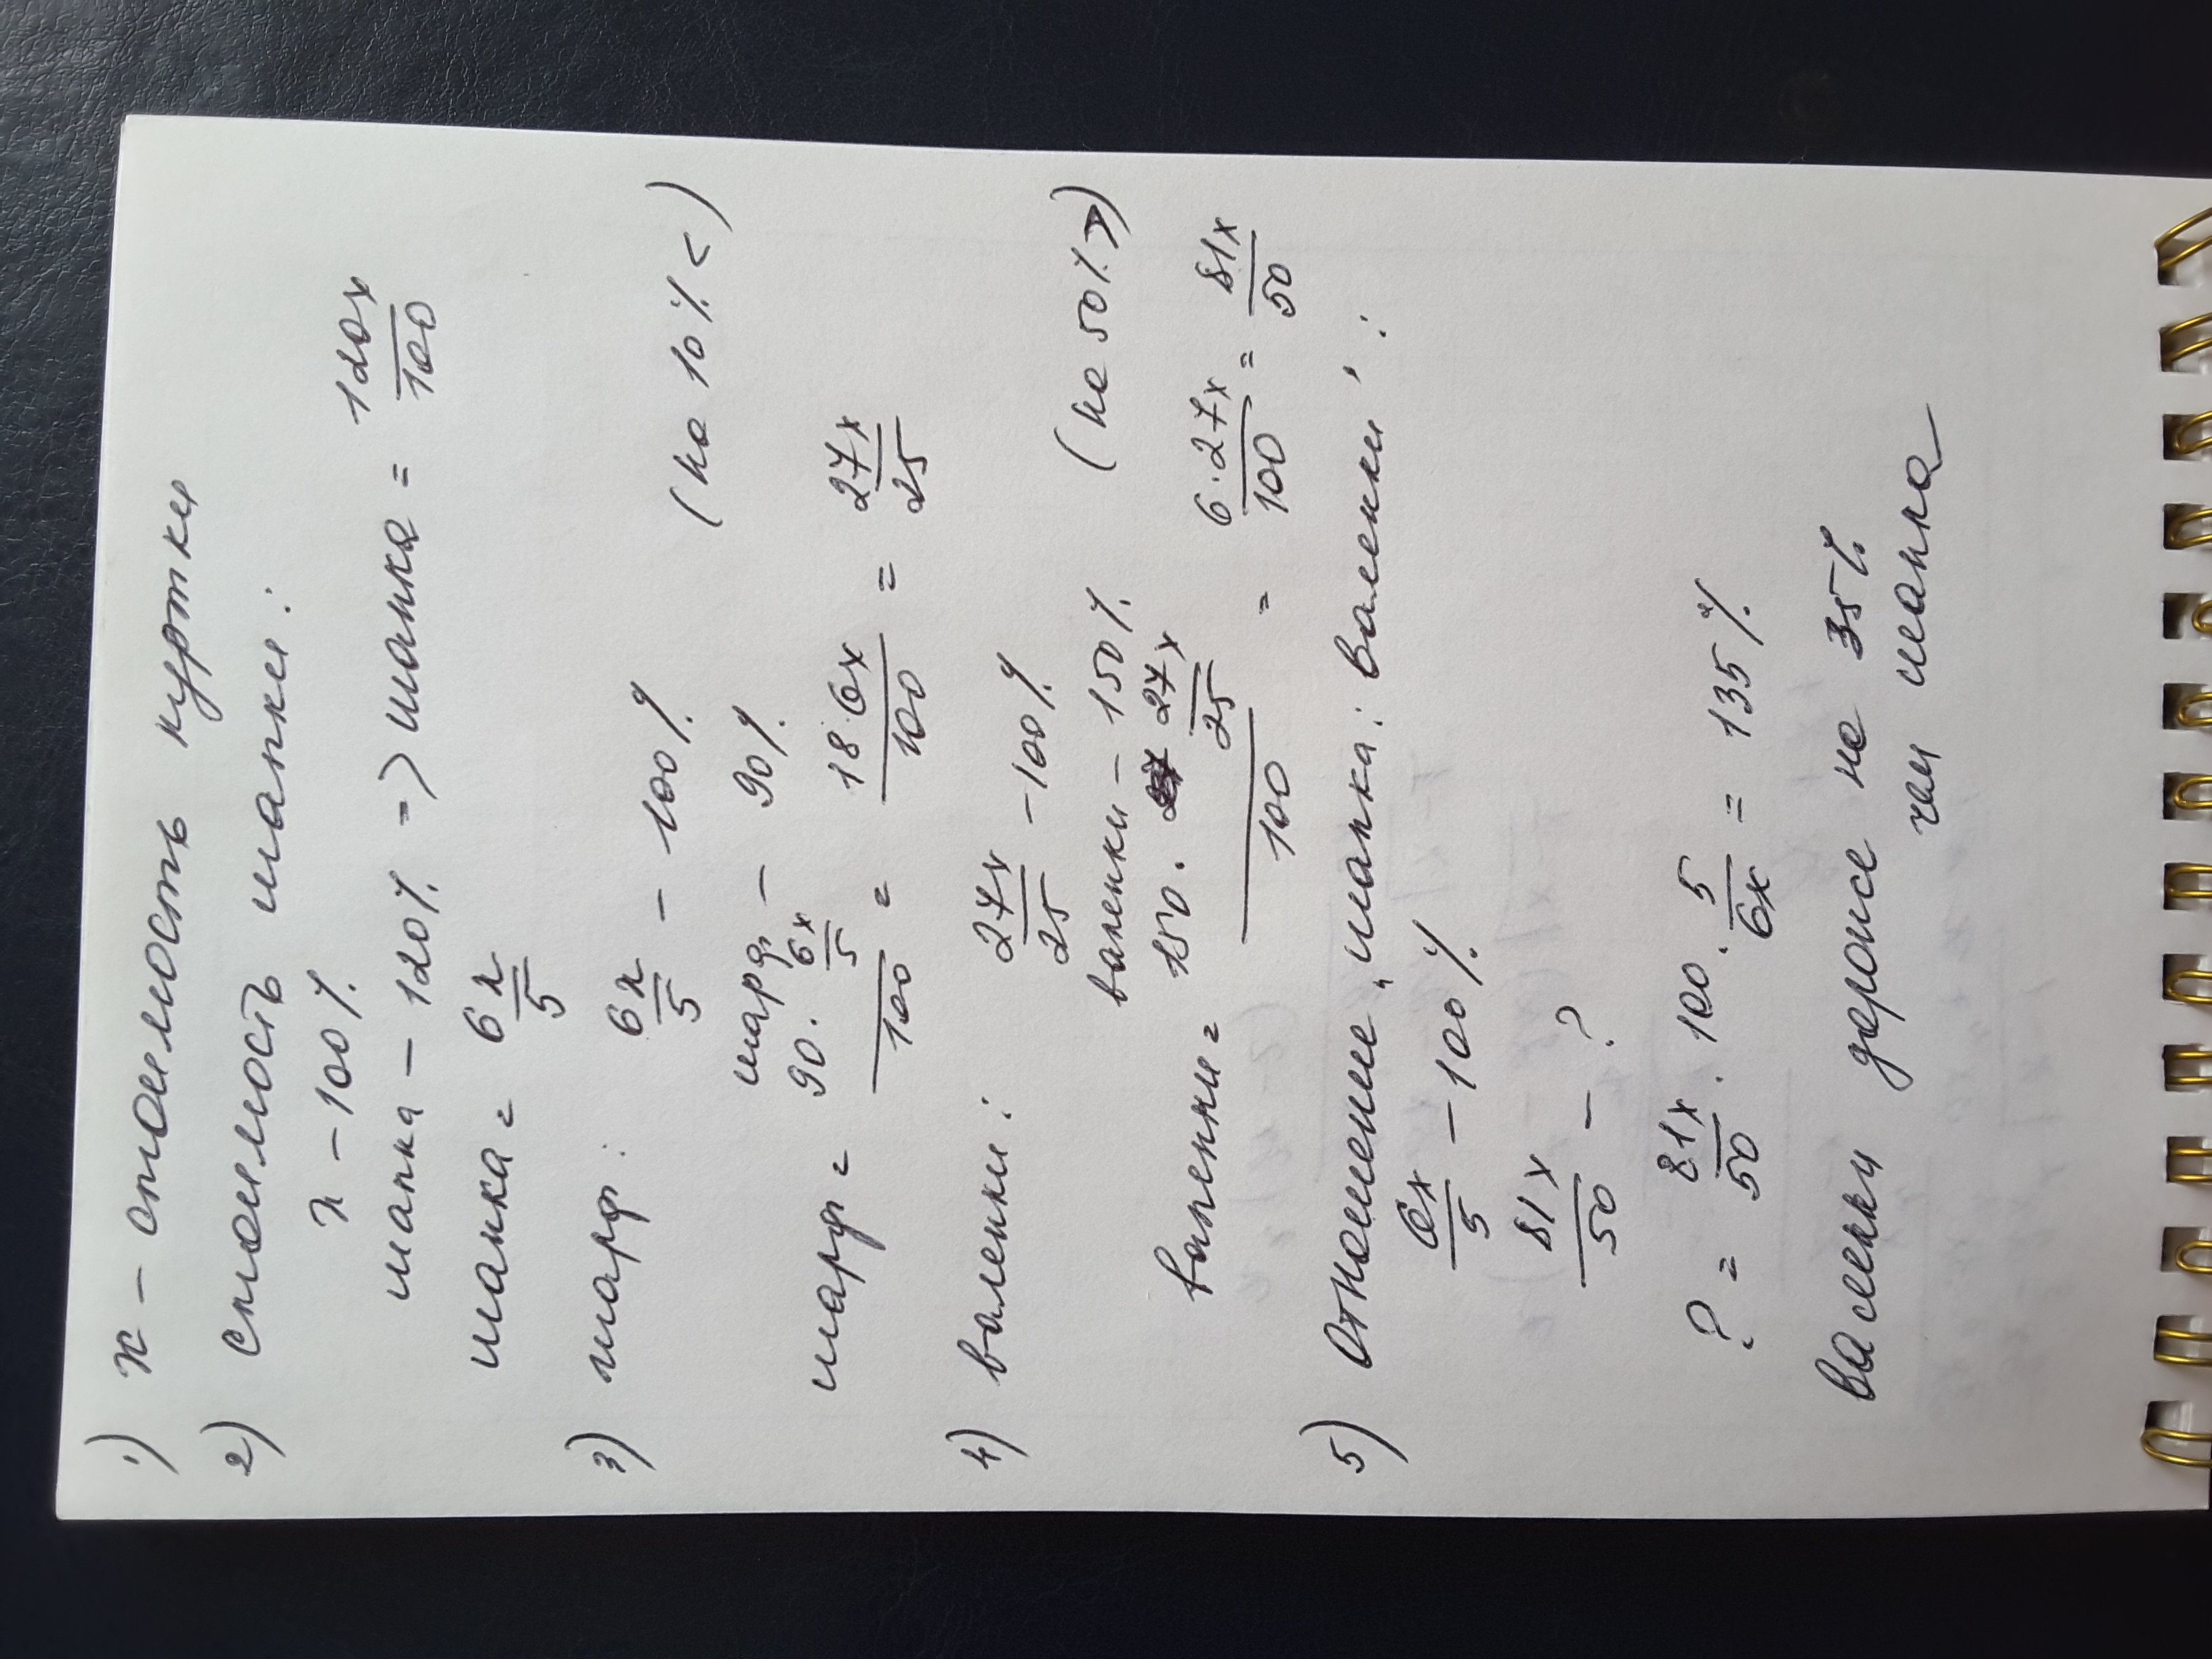 1) x – стоимость куртки
2) стоимость шапки:
x – 100%
шапка – 120% => шапка = 120x/100
шапка = 6x/5
3) шарф: 6x/5 – 100% (на 10% <)
шарф – 90%
шарф = (90 · 6x/5)/100 = 18·6x/100 = 27x/25
4) валенки: 27x/25 – 100%
валенки – 150% (на 50% >)
валенки = (150 · 27x/25)/100 = 6·27x/100 = 81x/50
5) Отношение "шапка : валенки":
6x/5 – 100%
81x/50 – ?
? = 81x/50 · 100 · 5/6x = 135%
валенки дороже на 35%
чем шапка